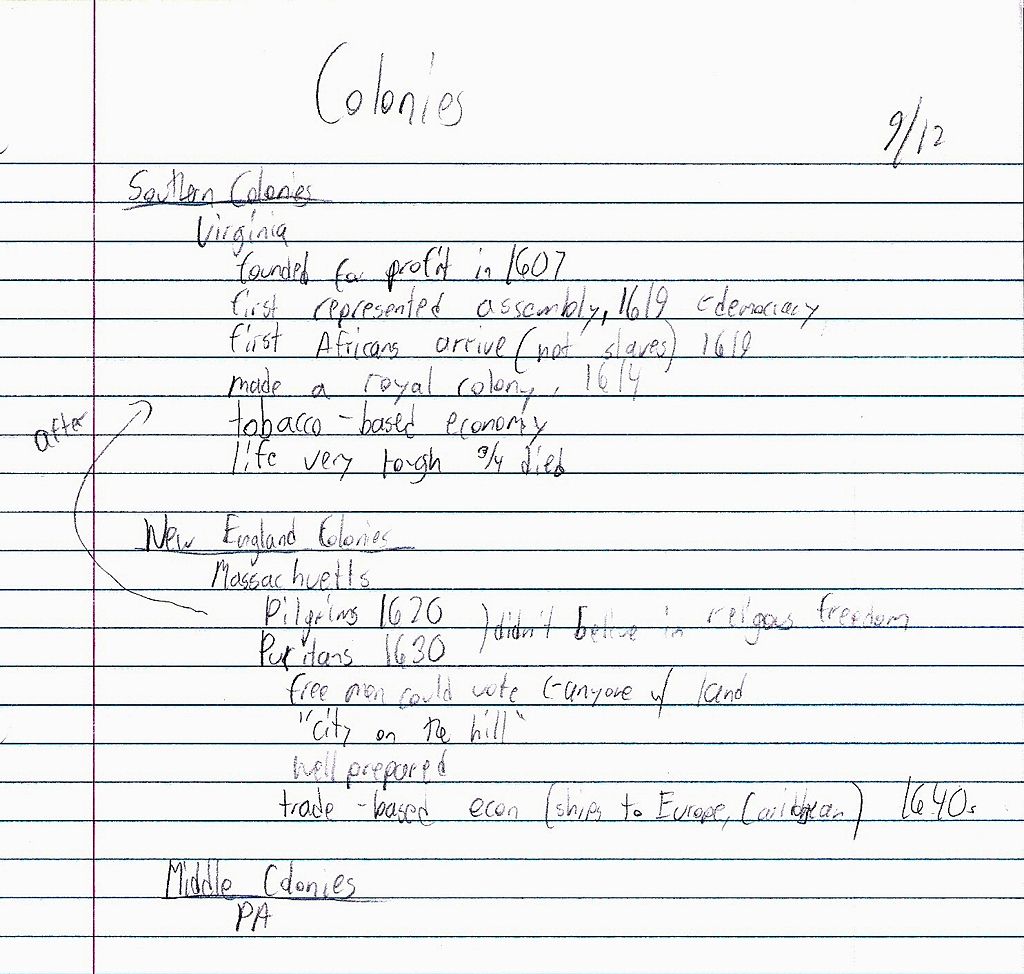 Colonies
9/12
Southern Colonies
Virginia
founded for profit in 1607
first represented assembly, 1619 ←democracy
first Africans arrive (not slaves) 1619
made a royal colony, 1614
after
tobacco-based economy
life very tough 3/4 died
New England Colonies
Massachuetts
Pilgrims 1620
) didn't belive in religous freedom
Puritans 1630
free men could vote ←anyone w/ land
"city on the hill"
well prepared
trade-based econ (ships to Europe, Caribbean) 1640s
Middle Colonies
PA